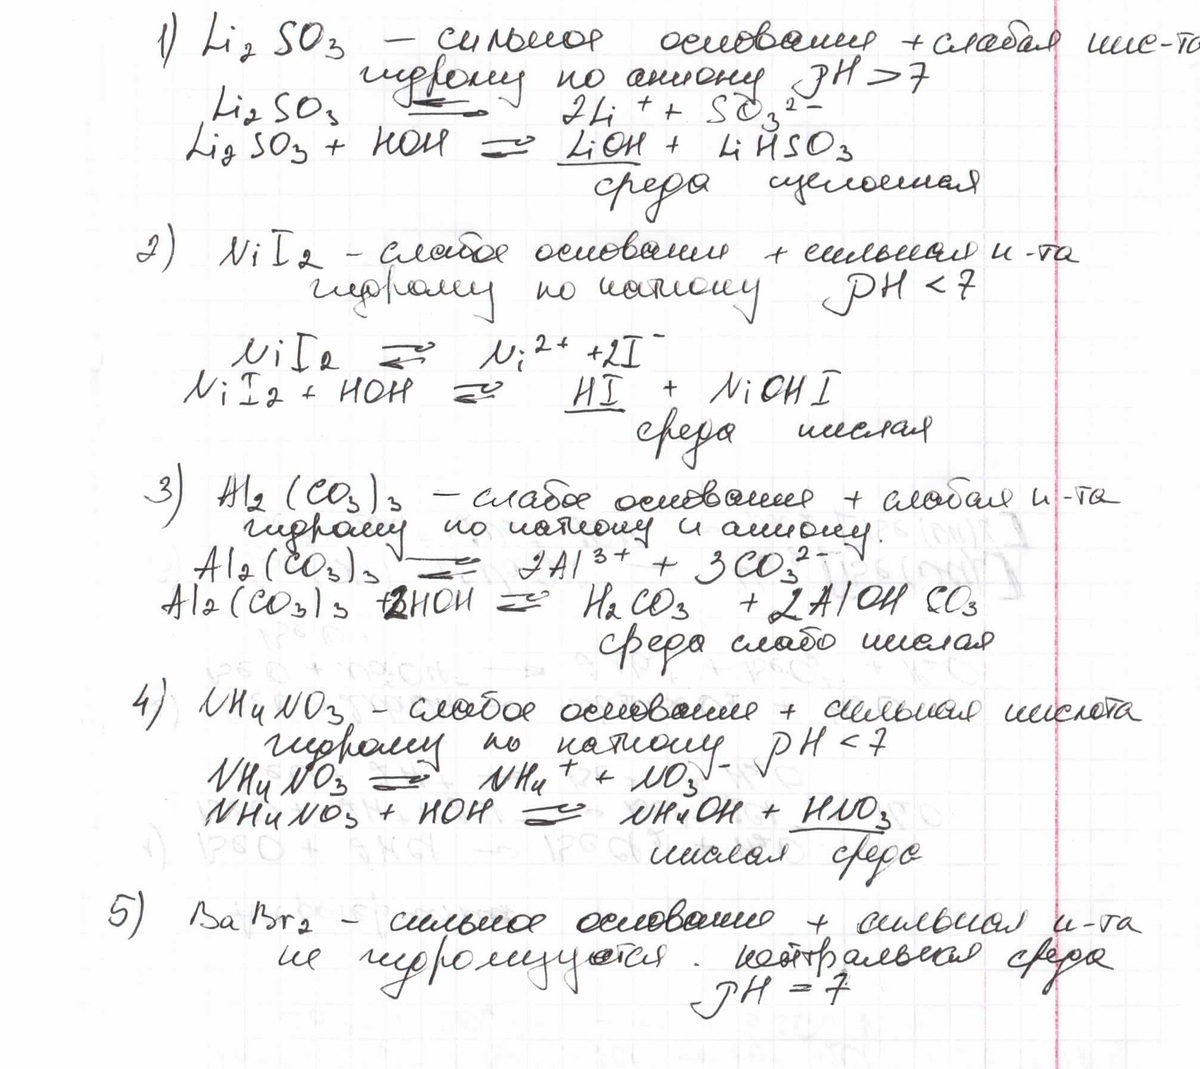 1) Li₂SO₃ – сильное основание + слабая кис-та
гидролиз по аниону pH > 7
Li₂SO₃ ⇌ 2Li⁺ + SO₃²⁻
Li₂SO₃ + HOH ⇌ LiOH + LiHSO₃
среда щелочная
2) NiI₂ – слабое основание + сильная к-та
гидролиз по катиону pH < 7
NiI₂ ⇌ Ni²⁺ + 2I⁻
NiI₂ + HOH ⇌ HI + NiOHI
среда кислая
3) Al₂(CO₃)₃ – слабое основание + слабая к-та
гидролиз по катиону и аниону.
Al₂(CO₃)₃ ⇌ 2Al³⁺ + 3CO₃²⁻
Al₂(CO₃)₃ + 2HOH ⇌ H₂CO₃ + 2AlOHCO₃
среда слабо кислая
4) NH₄NO₃ – слабое основание + сильная кислота
гидролиз по катиону pH < 7
NH₄NO₃ ⇌ NH₄⁺ + NO₃⁻
NH₄NO₃ + HOH ⇌ NH₄OH + HNO₃
кислая среда
5) BaBr₂ – сильное основание + сильная к-та
не гидролизуется. нейтральная среда
pH = 7